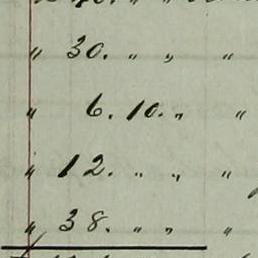 " 30. " " "
" 6. 10. " "
" 12. " " "
" 38. " " "